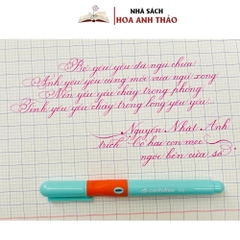 NHÀ SÁCH
HOA ANH THẢO
Bé yêu yêu đã ngủ chưa
Anh yêu yêu cũng mới vừa ngủ xong
Nến yêu yêu cháy trong phòng
Tình yêu yêu cháy trong lòng yêu yêu
Nguyễn Nhật Ánh
trích Có hai con mèo
ngồi bên cửa sổ